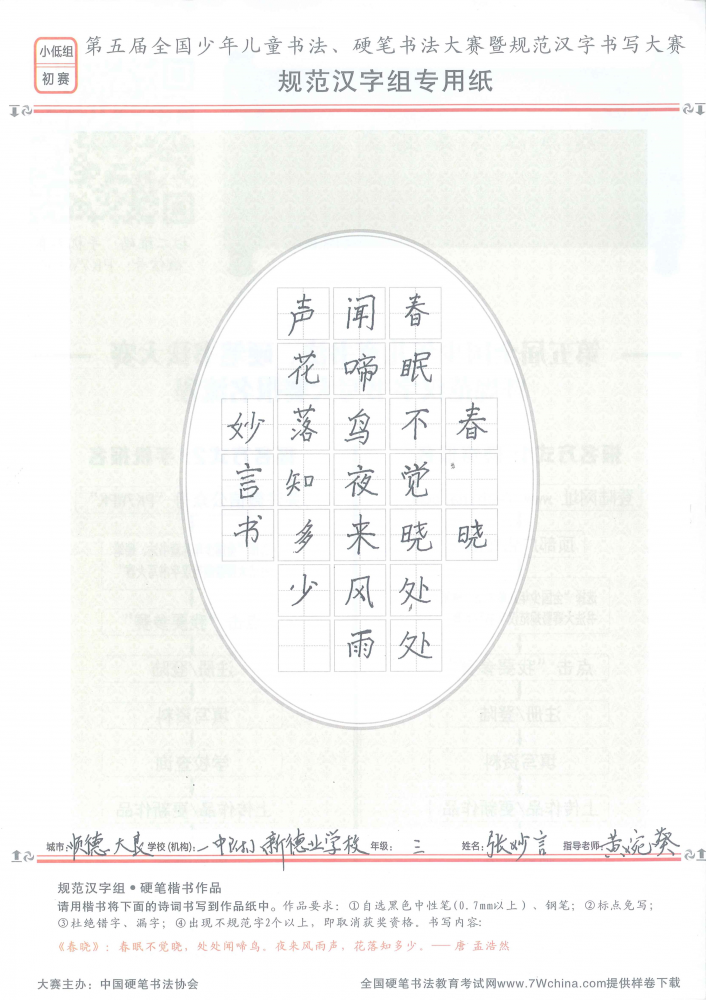 小低组
初赛
第五届全国少年儿童书法、硬笔书法大赛暨规范汉字书写大赛
规范汉字组专用纸
春晓
春眠不觉晓处处
闻啼鸟夜来风雨
声花落知多少
妙言书
城市：顺德大良 学校(机构)： 新德业学校 年级：三 姓名：张妙言 指导老师：黄婉葵
规范汉字组•硬笔楷书作品
请用楷书将下面的诗词书写到作品纸中。作品要求：①自选黑色中性笔(0.7mm以上)、钢笔；②标点免写；
③杜绝错字、漏字；④出现不规范字2个以上，即取消获奖资格。书写内容：
《春晓》：春眠不觉晓，处处闻啼鸟。夜来风雨声，花落知多少。——唐·孟浩然
大赛主办：中国硬笔书法协会
全国硬笔书法教育考试网www.7Wchina.com提供样卷下载